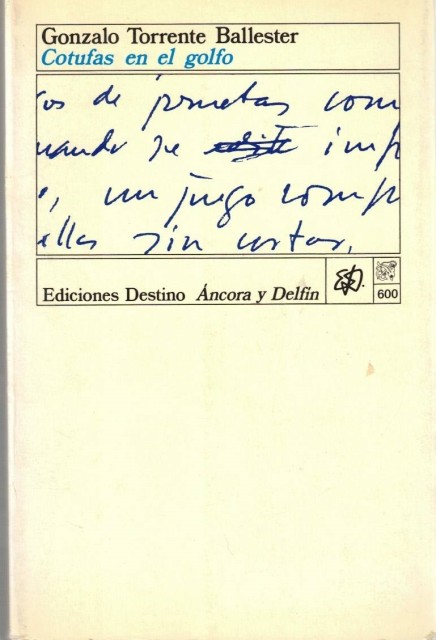 Gonzalo Torrente Ballester
Cotufas en el golfo
os de pruebas com
uando se edite imp
, un juego comp
ellas sin cortar,
Ediciones Destino Áncora y Delfín
600